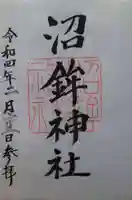 沼鉾神社
令和四年二月三日参拝